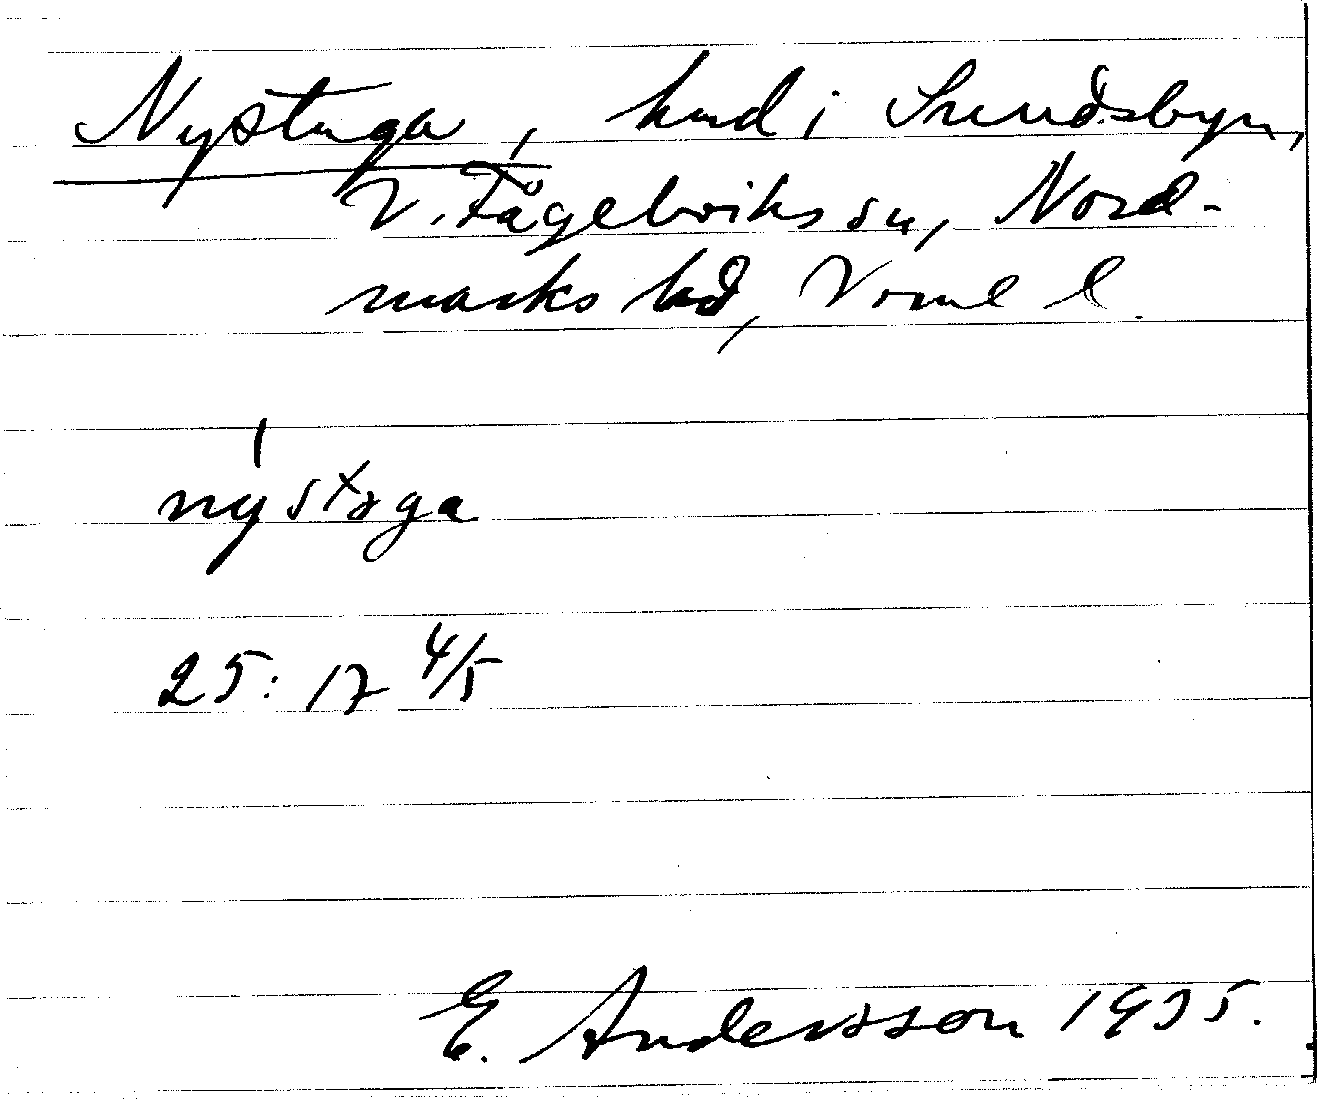 Nystuga, hmd i Sundsbyn,
V. Fågelviks sn, Nord-
marks hd, Vrml l.
nýstɤga
25: 17 4/5
E. Andersson 1935.